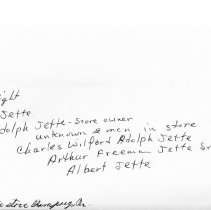 ight
Jette
dolph Jette - Store owner
unknown 2 men in store
Charles Wilford Adolph Jette
Arthur Freeman Jette Sr
Albert Jette
store